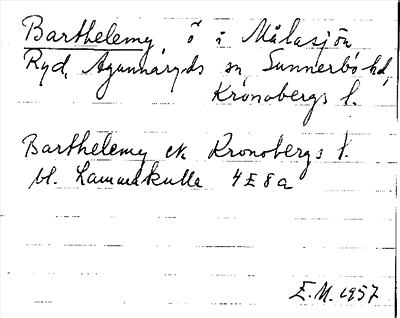 Barthelemy, ö i Målasjön
Ryd, Agunnaryds sn, Sunnerbo hd,
Kronobergs l.
Barthelemy ek Kronobergs l.
bl. Lammakulla 4E8a
E.M. 1957